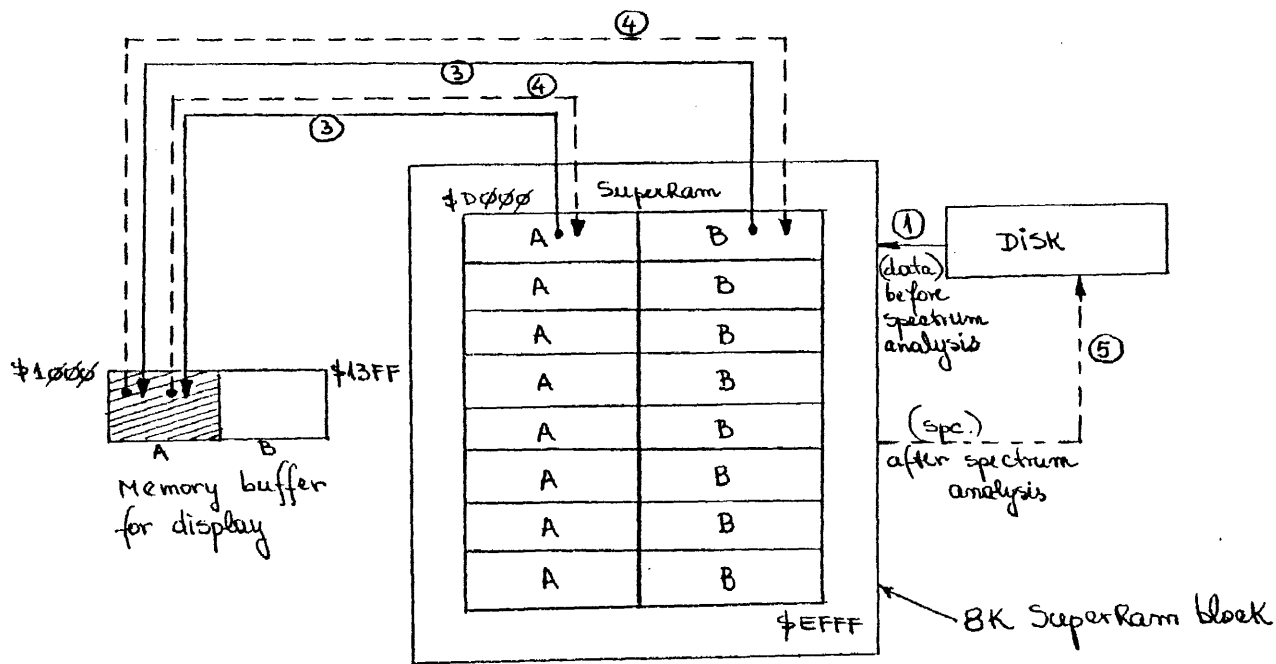 ④
③
④
③
$DØØØ
SuperRam
A B
A B
A B
A B
A B
A B
A B
A B
$EFFF
①
DISK
(data)
before
spectrum
analysis
⑤
(spc.)
after spectrum
analysis
$1ØØØ
$13FF
A B
Memory buffer
for display
8K SuperRam block